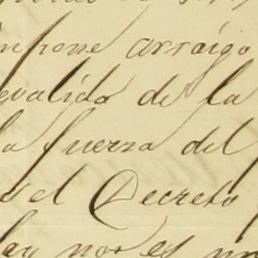 impone arraigo
evalida de la
la fuerza del
el Decreto
ley nos es